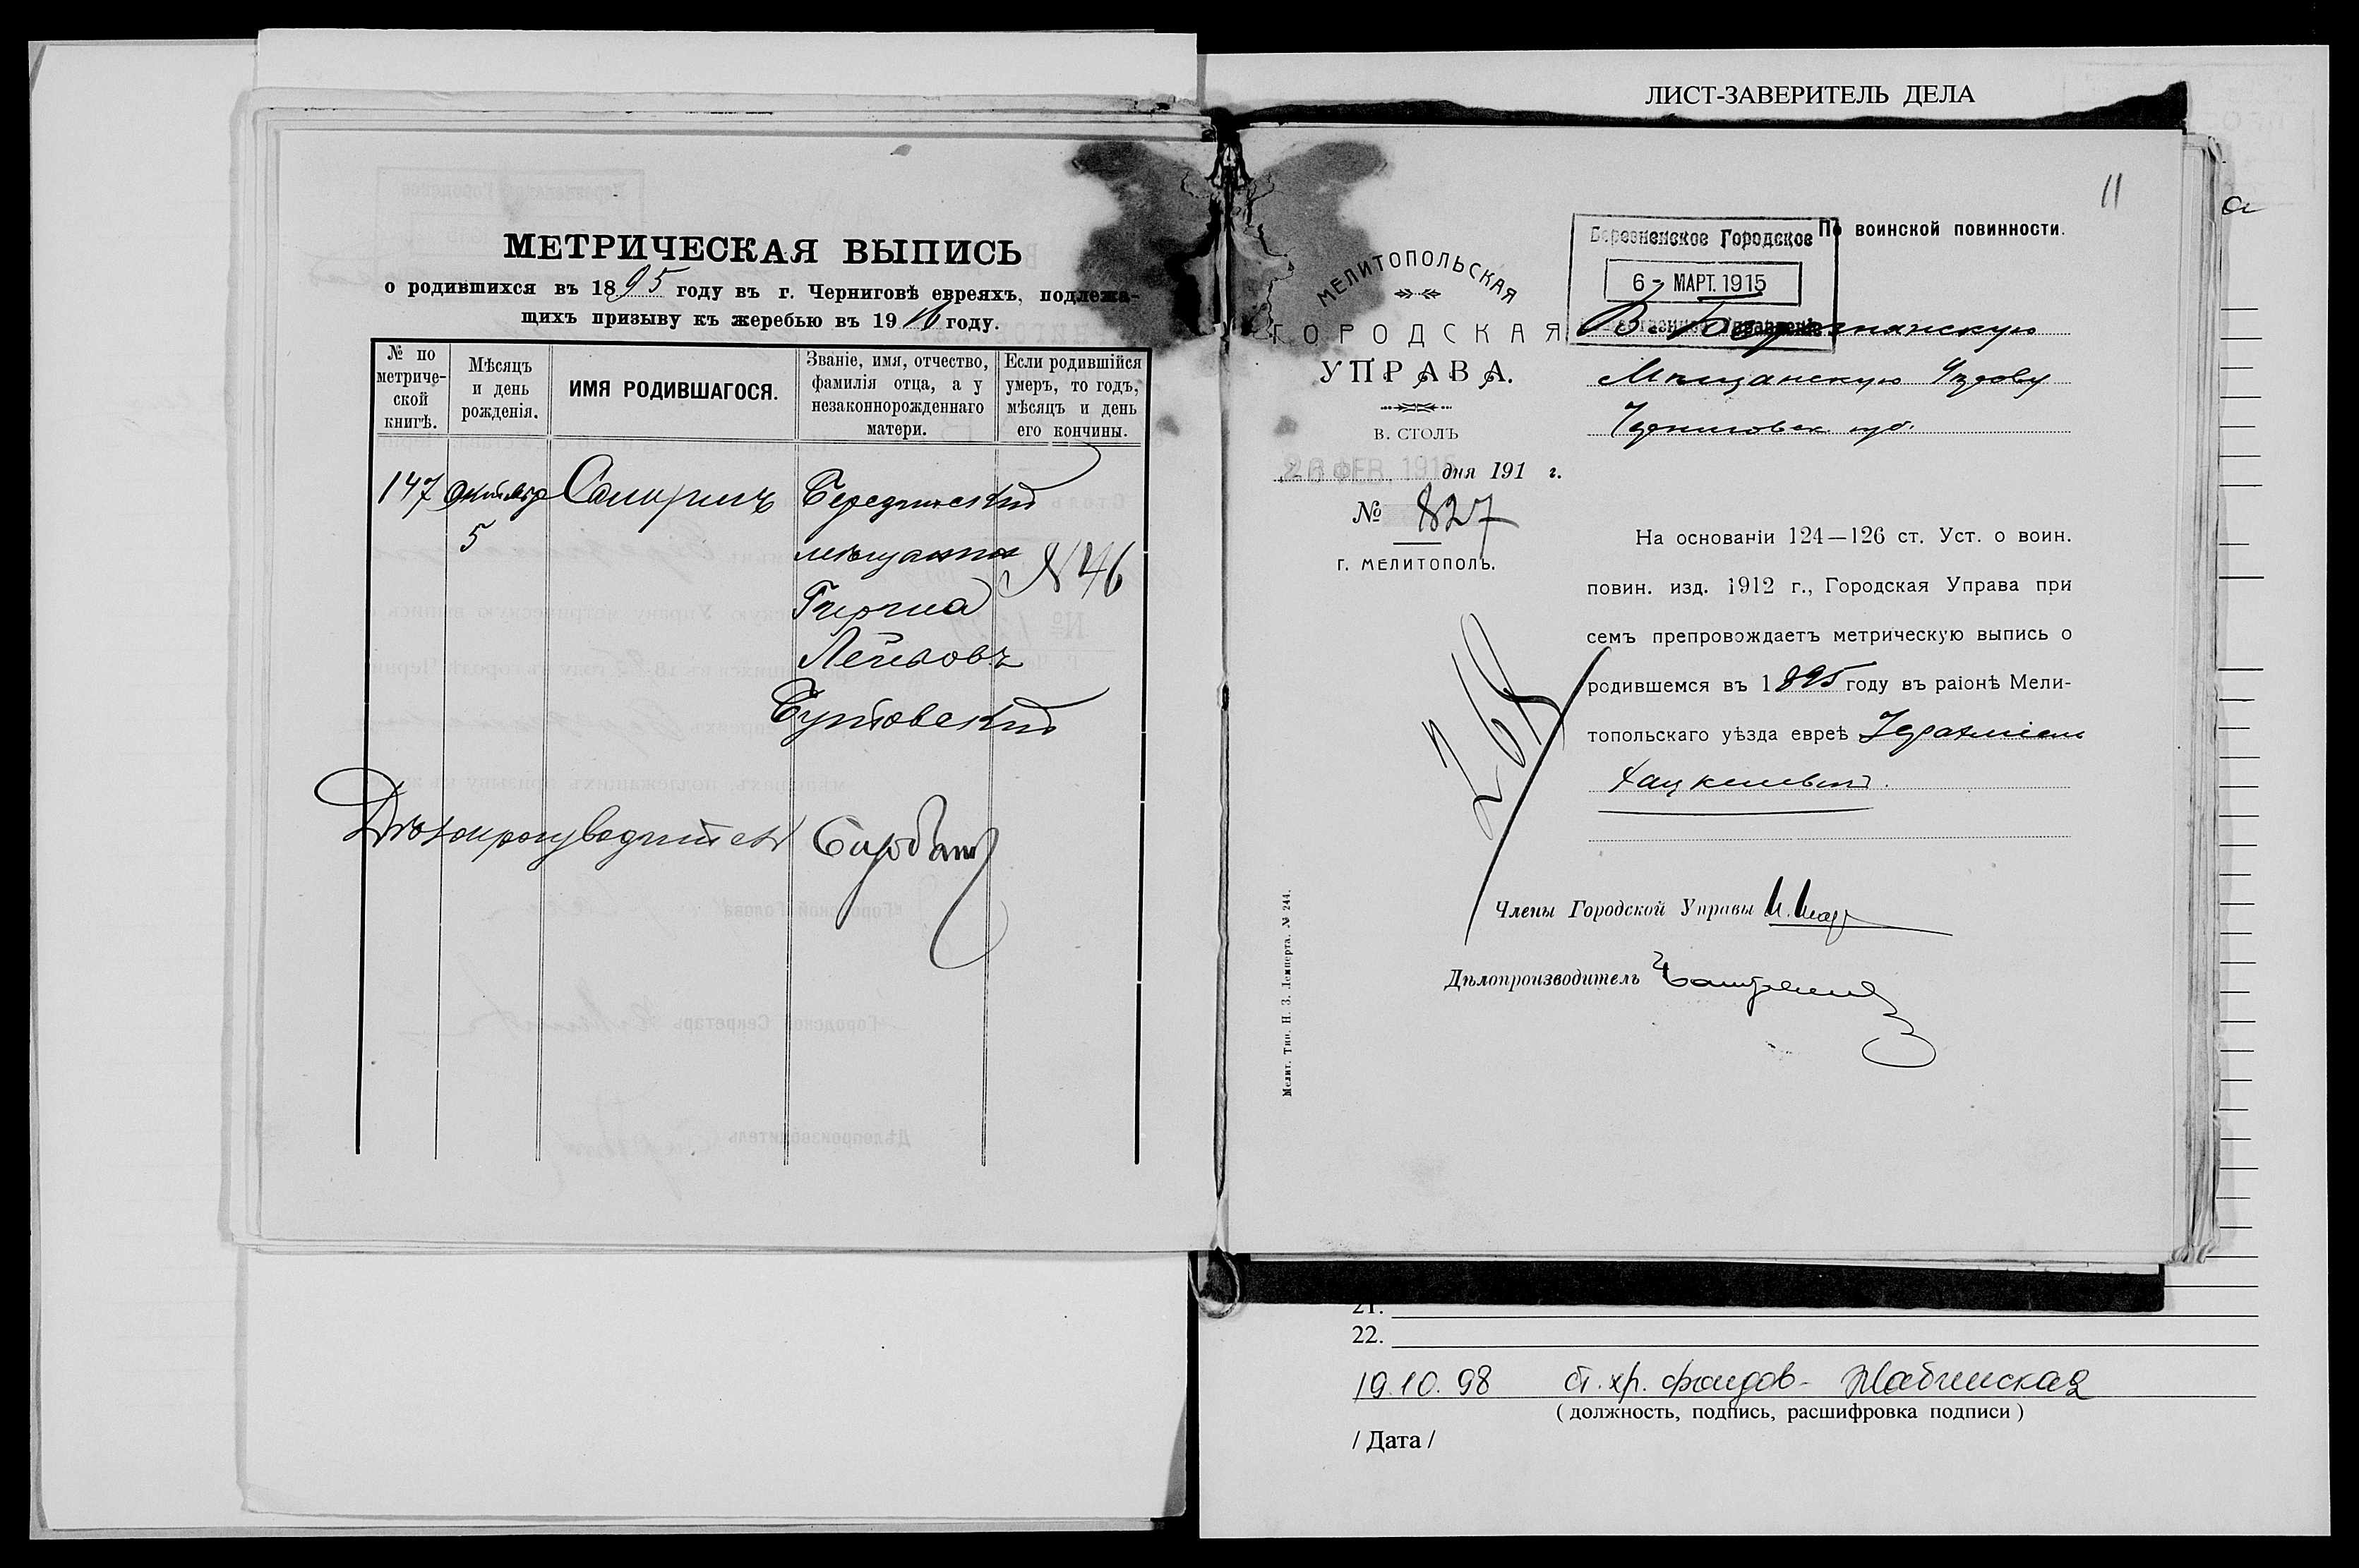 МЕТРИЧЕСКАЯ ВЫПИСЬ
о родившихся въ 1895 году въ г. Черниговѣ евреяхъ, подлежа-
щихъ призыву къ жеребью въ 1916 году.
№ по метриче-ской книгѣ.
Мѣсяцъ и день рожденія.
ИМЯ РОДИВШАГОСЯ.
Званіе, имя, отчество, фамилія отца, а у незаконнорожденнаго матери.
Если родившійся умеръ, то годъ, мѣсяцъ и день его кончины.
147 Октябр Самуилъ Березинскій
5 мѣщанин
№ 46
Гирша
Лейбовъ
Бутовскій
Дѣлопроизводитель
ЛИСТ-ЗАВЕРИТЕЛЬ ДЕЛА
11
а
По воинской повинности.
Березненское Городское
6- МАРТ. 1915
МЕЛИТОПОЛЬСКАЯ
ГОРОДСКАЯ
УПРАВА.
В. СТОЛЪ
26 ФЕВ. 1915 дня 191 г.
№ 827
г. МЕЛИТОПОЛЬ.
В
Мѣщанскую Управу
Черниговск. губ.
На основаніи 124—126 ст. Уст. о воин.
повин. изд. 1912 г., Городская Управа при
семъ препровождаетъ метрическую выпись о
родившемся въ 1895 году въ раіонѣ Мели-
топольскаго уѣзда евреѣ Іерахміель
Хацкелевъ.
Члены Городской Управы
Дѣлопроизводитель
Мелит. Тип. Н. З. Лемперта. № 244.
21.
22.
19.10.98 ст. хр. фондов-
( должность, подпись, расшифровка подписи )
/ Дата /